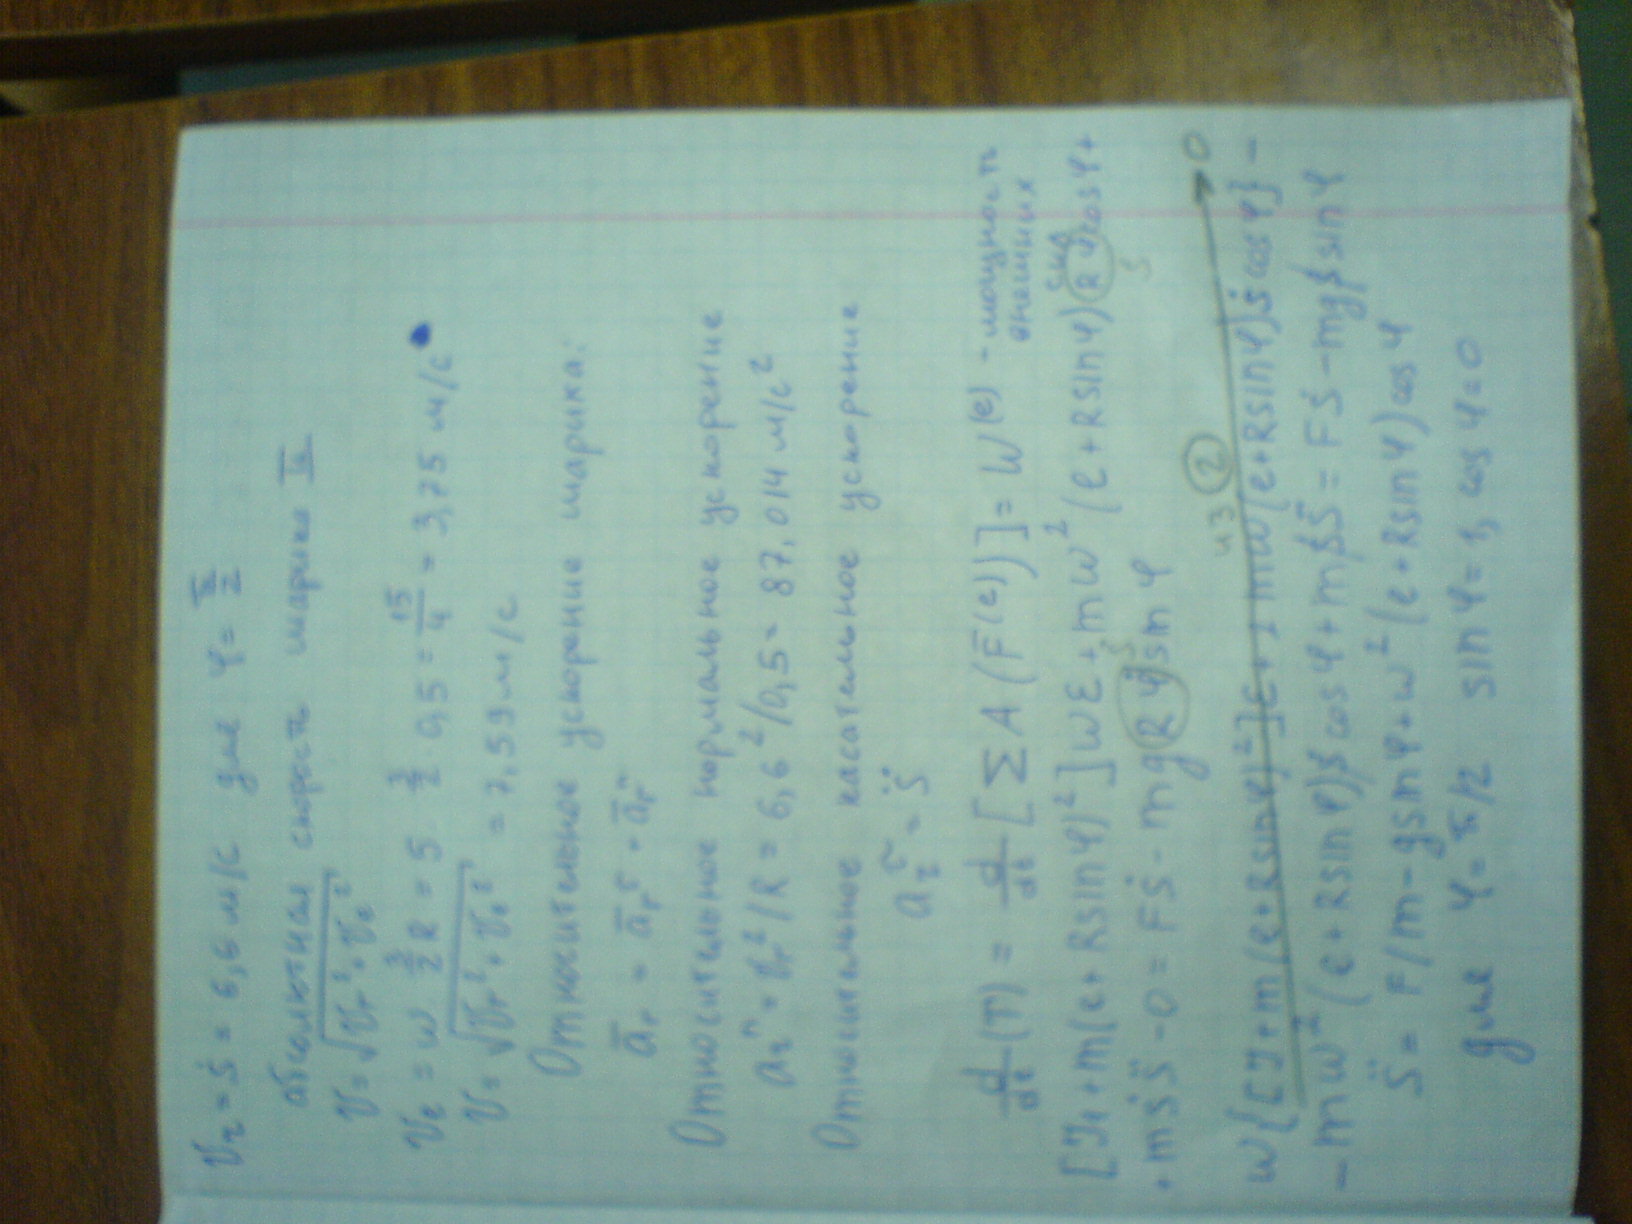 Vr = ṡ = 6,6 м/с для φ = π/2
абсолютная скорость шарика
V = √(Vr² + Ve²)
Ve = ω 3/2 R = 5 3/2 0,5 = 15/4 = 3,75 м/с
V = √(Vr² + Ve²) = 7,59 м/с
Относительное ускорение шарика:
ār = ārτ + ārn
Относительное нормальное ускорение
arn = Vr²/R = 6,6²/0,5 = 87,014 м/с²
Относительное касательное ускорение
arτ = s̈
d/dt (T) = d/dt [Σ A (F̄(e))] = W(e) - мощность внешних сил
[J1 + m(e + R sin φ)²] ω ε + mω² (e + R sin φ) R φ̇ cos φ +
ṡ
+ m ṡ s̈ - 0 = F ṡ - mg R φ̇ sin φ
ṡ
из 2
ω{[J + m(e + R sin φ)²] ε + 2 mω(e + R sin φ) ṡ cos φ} - → 0
- mω² (e + R sin φ) ṡ cos φ + m ṡ s̈ = F ṡ - mg ṡ sin φ
s̈ = F/m - g sin φ + ω² (e + R sin φ) cos φ
для φ = π/2 sin φ = 1, cos φ = 0